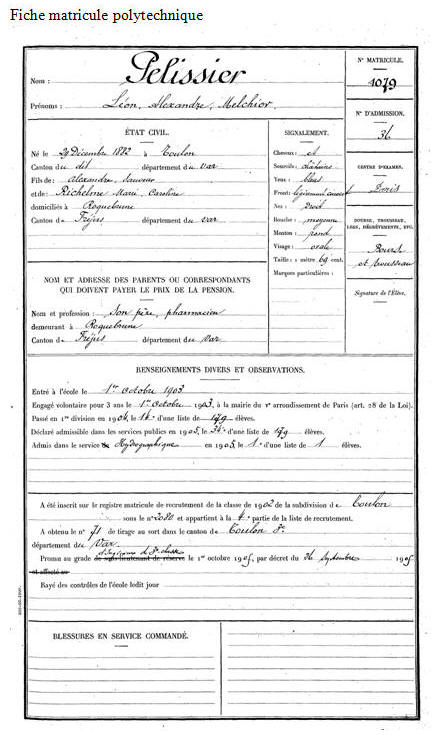 Fiche matricule polytechnique
Nom : Pelissier
Prénoms : Léon, Alexandre, Melchior
N° MATRICULE.
1079
N° D'ADMISSION.
36
CENTRE D'EXAMEN.
Paris
BOURSE, TROUSSEAU,
Bourse
et trousseau
Signature de l'Élève.
ÉTAT CIVIL.
Né le 29 Décembre 1882 à Toulon
Canton du dit département du Var
Fils de : Alexandre,
et de : Richelme Marie Caroline
domiciliés à Roquebrune
Canton de Fréjus département du Var
SIGNALEMENT.
Cheveux : et
Sourcils : châtains
Yeux : bleus
Front : légèrement
Nez : Droit
Bouche : moyenne
Menton : rond
Visage : ovale
Taille : 1 mètre 69 cent.
Marques particulières :
NOM ET ADRESSE DES PARENTS OU CORRESPONDANTS
QUI DOIVENT PAYER LE PRIX DE LA PENSION.
Nom et profession : Son père, pharmacien
demeurant à Roquebrune
Canton de Fréjus département du Var
RENSEIGNEMENTS DIVERS ET OBSERVATIONS.
Entré à l'école le 1er Octobre 1903
Engagé volontaire pour 3 ans le 1er Octobre 1903, à la mairie du Ve arrondissement de Paris (art. 28 de la Loi).
Passé en 1re division en 1904, le d'une liste de 179 élèves.
Déclaré admissible dans les services publics en 1905, le d'une liste de 179 élèves.
Admis dans le service de Hydrographique en 1905, le 1er d'une liste de 1 élèves.
A été inscrit sur le registre matricule de recrutement de la classe de 1902 de la subdivision de Toulon
sous le n° 2080 et appartient à la 4e partie de la liste de recrutement.
A obtenu le n° 71 de tirage au sort dans le canton de Toulon
département du Var
Promu au grade de sous-lieutenant de réserve le 1er octobre 1905, par décret du 26 Septembre 1905
et affecté au
Rayé des contrôles de l'école ledit jour
BLESSURES EN SERVICE COMMANDÉ.